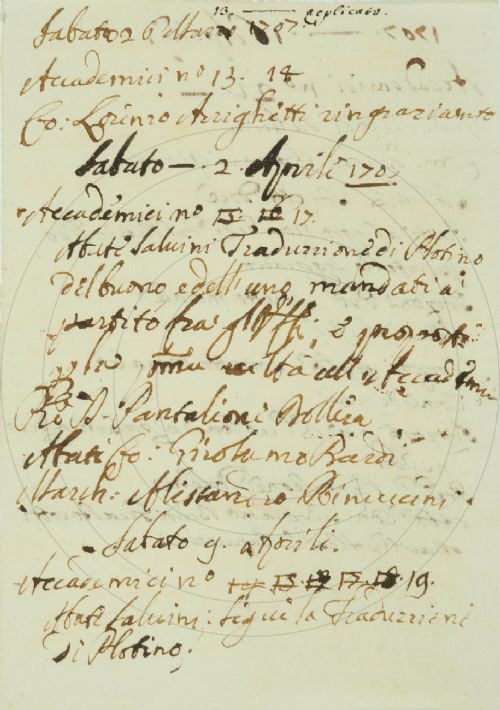 13. — applicato.
Sabato 26 Marzo 1707.
Accademici nº 13. 14
Co: Lorenzo Arrighetti ringraziamto
Sabato —. 2. Aprile 1707.
Accademici nº 15. 16 17.
Abate Salvini Traduzzione di Plotino
del buono e dell'uno mandati a
partito fra gl'Uffi, e proposti
p la pma volta all'Accademia
Pre D. Pantalioni Dollera
Abate Co: Girolamo Bardi
March: Alessandro Rinuccini
Sabato 9. Aprile.
Accademici nº 14 15 16 17 18. 19.
Abate Salvini: Segui la Traduzzione
Di Plotino;